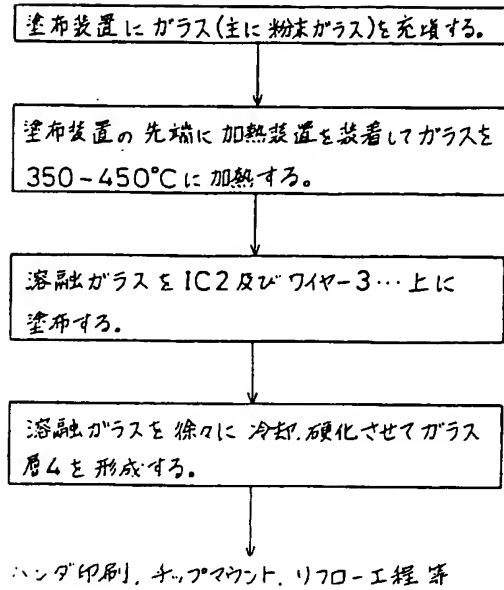 塗布装置にガラス(主に粉末ガラス)を充填する。
塗布装置の先端に加熱装置を装着してガラスを
350-450°Cに加熱する。
溶融ガラスをIC2及びワイヤー3…上に
塗布する。
溶融ガラスを徐々に冷却.硬化させてガラス
層4を形成する。
ハンダ印刷.チップマウント.リフロー工程等